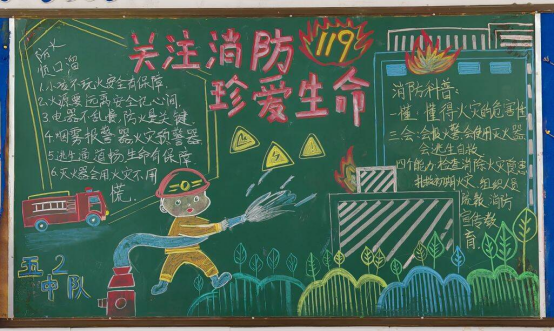 关注消防
珍爱生命
119
防火
顺口溜
1.小孩不玩火安全有保障
2.火源要远离安全记心间
3.电器不乱摸防火是关键
4.烟雾报警器火灾预警器
5.逃生通道畅生命有保障
6.灭火器会用火灾不用
慌.
消防科普:
一懂:懂得火灾的危害性
三会:会报火警会使用灭火器
会逃生自救
四个能力:检查消除火灾隐患
扑救初期火灾 组织人员
疏散 消防
宣传教
育.
五2
中队